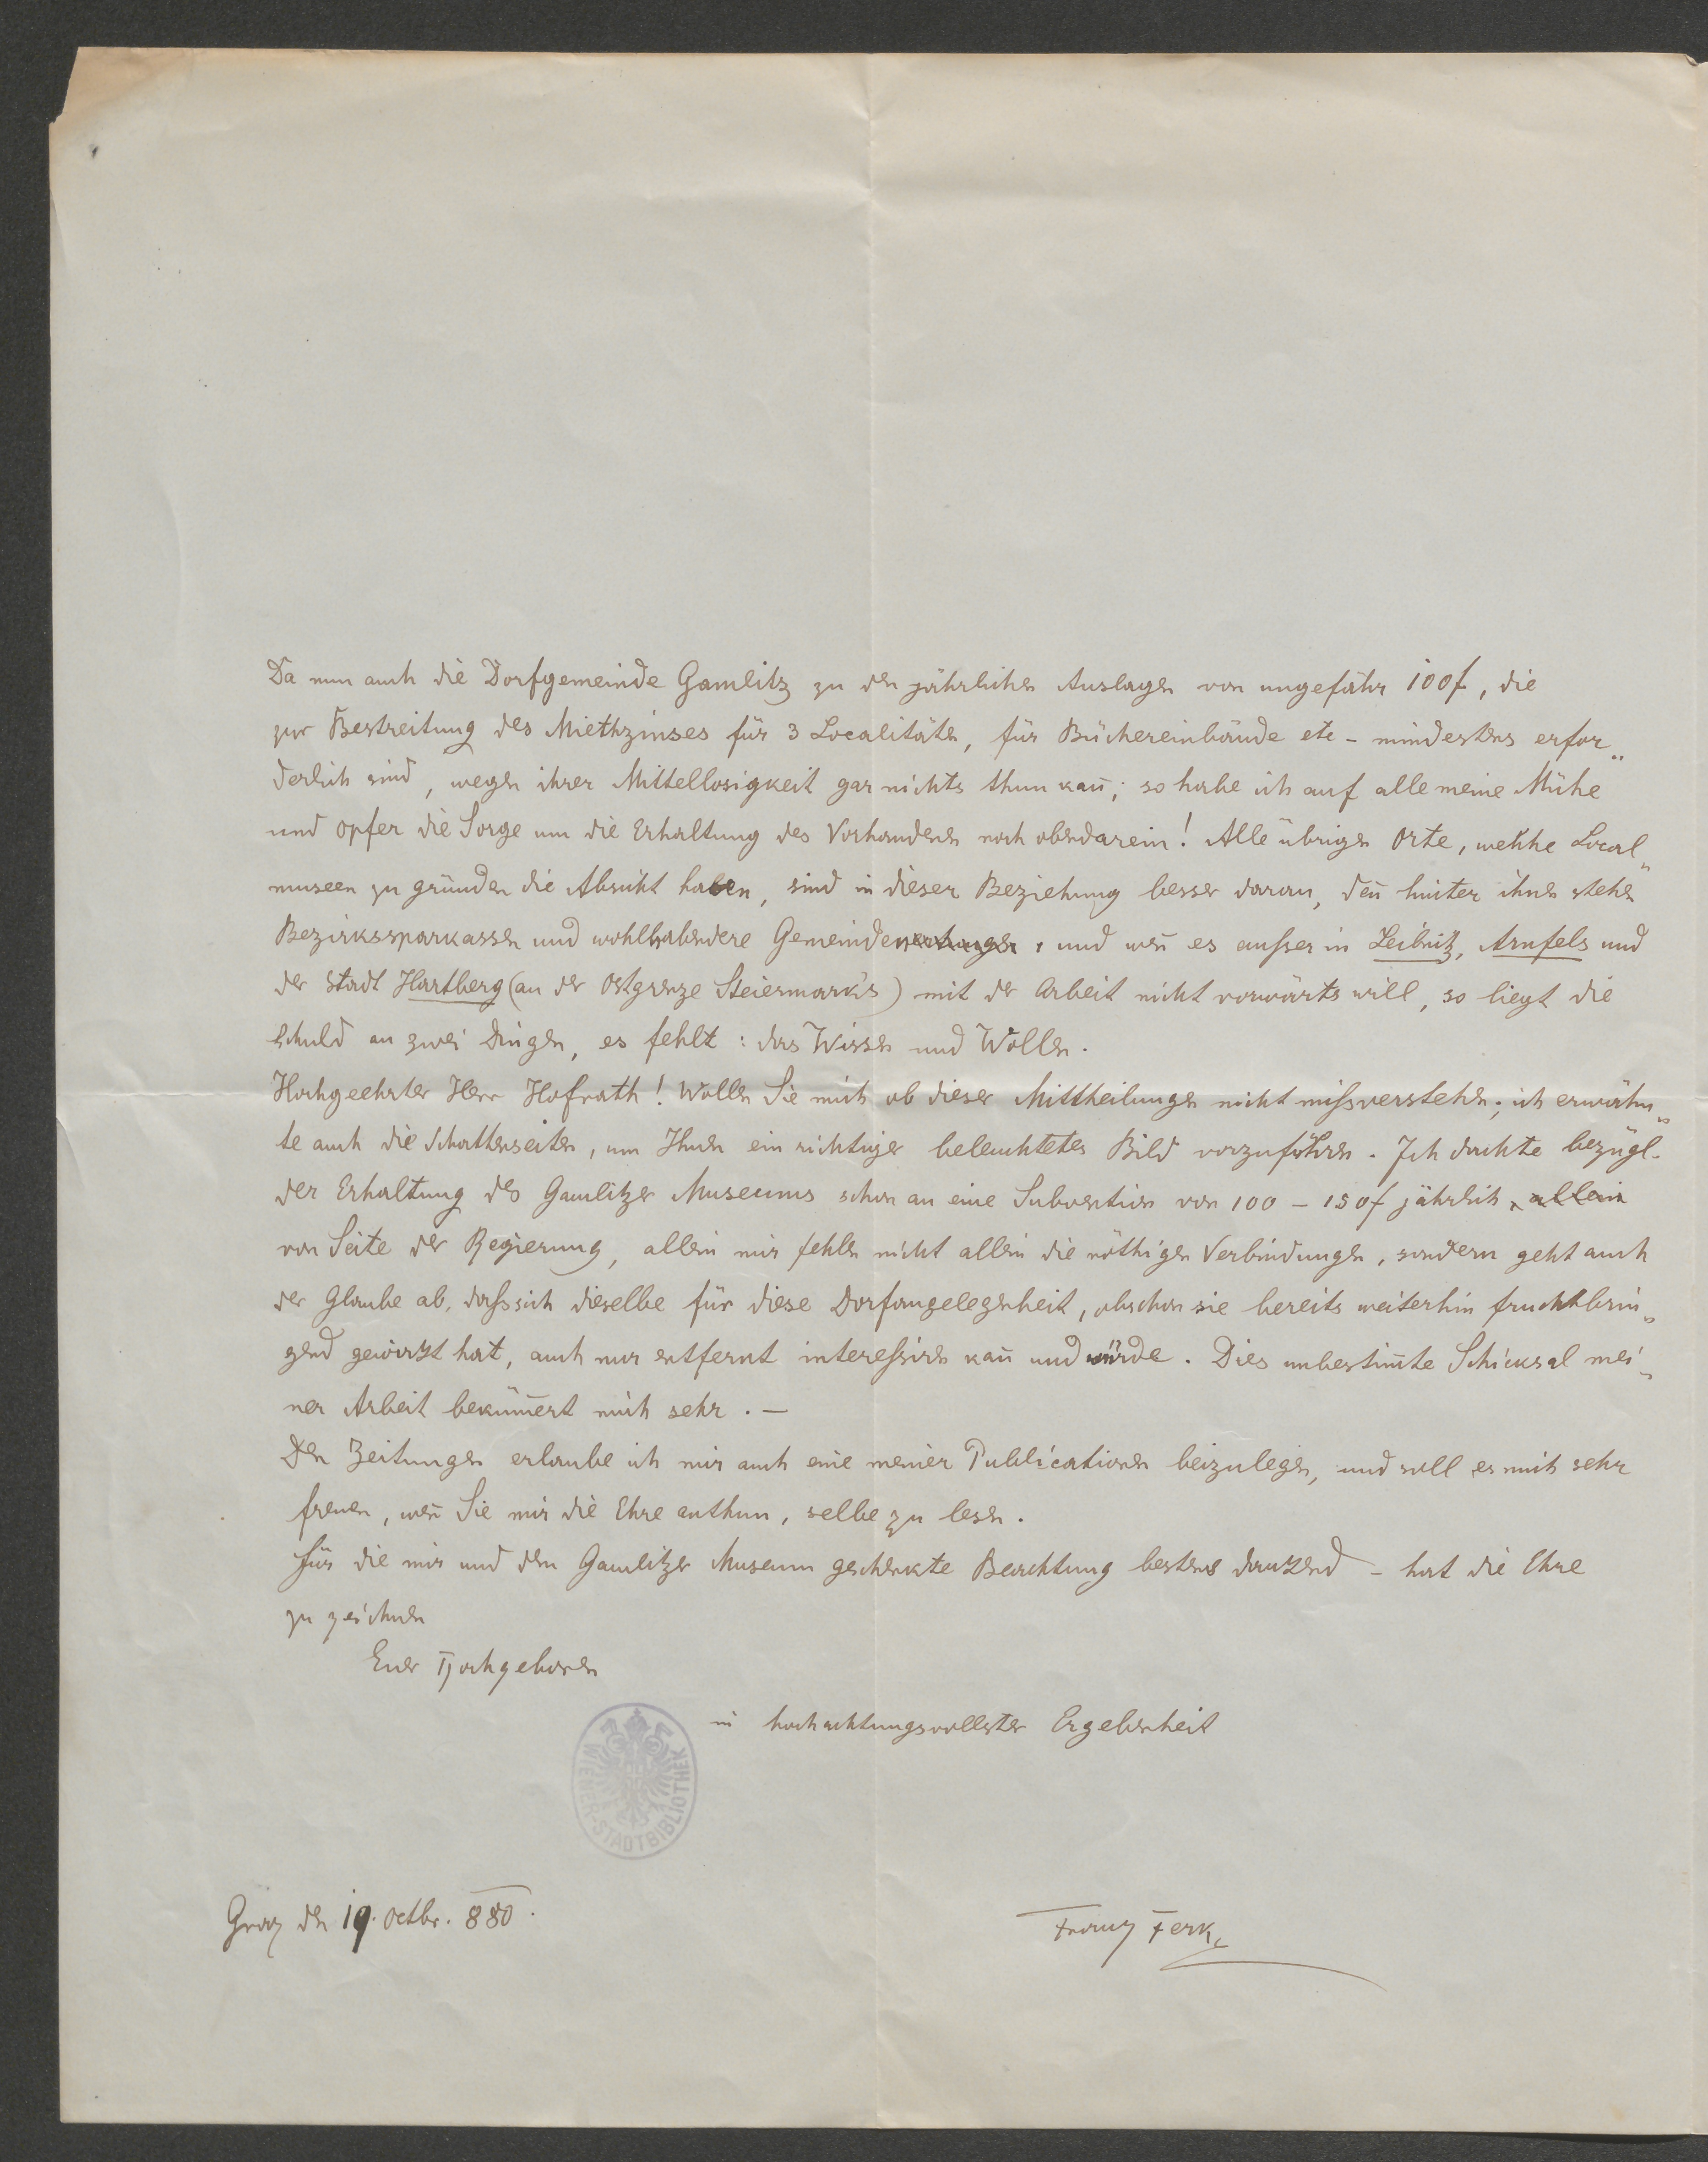 Da nun auch die Dorfgemeinde Gamlitz zu den jährlichen Auslagen von ungefähr 100f, die
zur Bestreitung des Miethzinses für 3 Localitäten, für Büchereinbände etc – mindestens erfor„
derlich sind, wegen ihrer Mittellosigkeit gar nichts thun kan̄; so habe ich auf alle meine Mühe
und Opfer die Sorge um die Erhaltung des Vorhandenen noch obendarein! Alle übrigen Orte, welche Local„
museen zu gründen die Absicht haben, sind in dieser Beziehung besser daran, den̄ hinter ihnen stehen
Bezirkssparkassen und wohlhabendere Gemeinden, und wen̄ es ausser in Leibnitz, Arnfels und
der Stadt Hartberg (an der Ostgrenze Steiermark's) mit der Arbeit nicht vorwärts will, so liegt die
Schuld an zwei Dingen, es fehlt: das Wissen und Wollen.
Hochgeehrter Herr Hofrath! Wollen Sie mich ob dieser Mittheilungen nicht missverstehen; ich erwähn„
te auch die Schattenseiten, um Ihnen ein richtiger beleuchtetes Bild vorzuführen. Ich dachte bezügl.
der Erhaltung des Gamlitzer Museums schon an eine Subvention von 100 – 150f jährlich, allein
von Seite der Regierung, allein mir fehlen nicht allein die nöthigen Verbindungen, sondern geht auch
der Glaube ab, dass sich dieselbe für diese Dorfangelegenheit, obschon sie bereits weiterhin fruchtbrin„
gend gewirkt hat, auch nur entfernt interessiren kan̄ und würde. Dies unbestim̄te Schicksal mei„
ner Arbeit beküm̄ert mich sehr. —
Den Zeitungen erlaube ich mir auch eine meiner Publicationen beizulegen, und soll es mich sehr
freuen, wen̄ Sie mir die Ehre anthun, selbe zu lesen.
Für die mir und dem Gamlitzer Museum geschenkte Beachtung bestens dankend – hat die Ehre
zu zeichnen
Euer Hochgeboren
in hochachtungsvollster Ergebenheit
WIENER-STADTBIBLIOTHEK
Graz den 19. Octbr. 880.
Franz Ferk